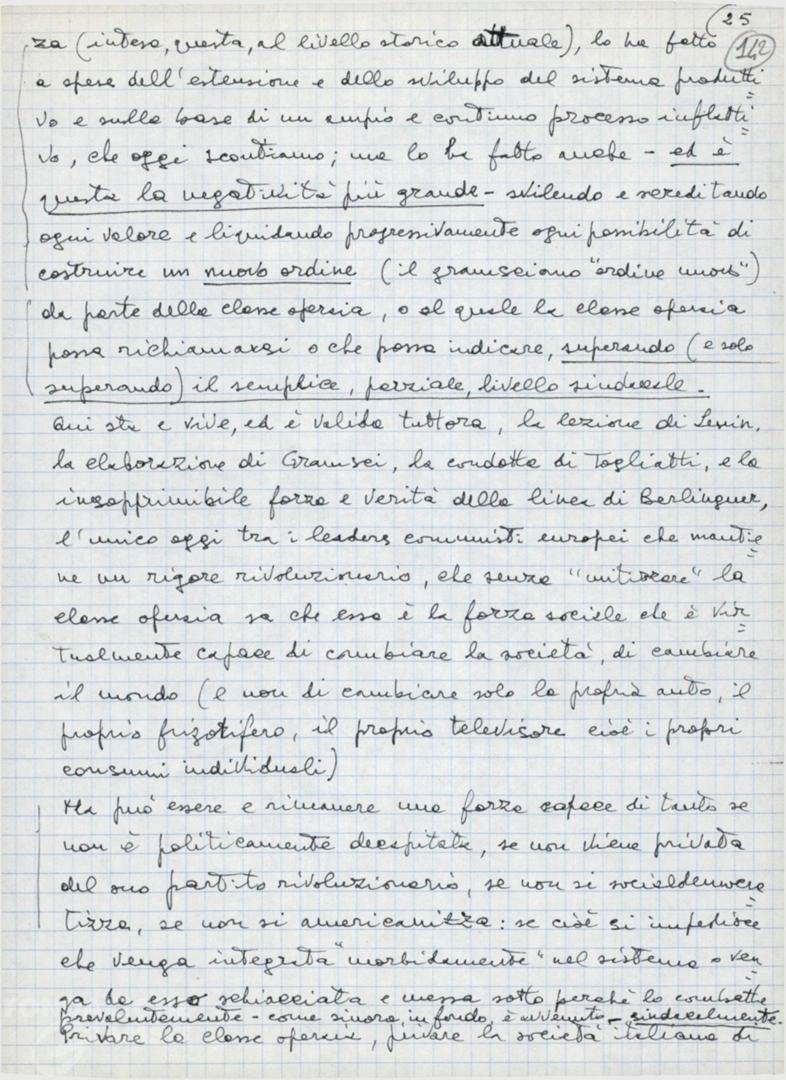 25
142
za (intesa, questa, al livello storico attuale), lo ha fatto
a spese dell'estensione e dello sviluppo del sistema produtti
vo e sulla base di un ampio e continuo processo inflatti
vo, che oggi scontiamo; ma lo ha fatto anche - ed è
questa la negatività più grande - svilendo e screditando
ogni valore e liquidando progressivamente ogni possibilità di
costruire un nuovo ordine (il gramsciano "ordine nuovo")
da parte della classe operaia, o al quale la classe operaia
possa richiamarsi o che possa indicare, superando (e solo
superando) il semplice, parziale, livello sindacale.
Qui sta e vive, ed è valida tuttora, la lezione di Lenin,
la elaborazione di Gramsci, la condotta di Togliatti, e la
insopprimibile forza e verità della linea di Berlinguer,
l'unico oggi tra i leaders comunisti europei che mantie
ne un rigore rivoluzionario, che senza "mitizzare" la
classe operaia sa che essa è la forza sociale che è vir
tualmente capace di cambiare la società, di cambiare
il mondo (e non di cambiare solo la propria auto, il
proprio frigorifero, il proprio televisore cioè i propri
consumi individuali)
Ma può essere e rimanere una forza capace di tanto se
non è politicamente decapitata, se non viene privata
del suo partito rivoluzionario, se non si socialdemocra
tizza, se non si americanizza: se cioè si impedisce
che venga integrata "morbidamente" nel sistema o ven
ga da esso schiacciata e messa sotto perché lo combatte
prevalentemente - come sinora, in fondo, è avvenuto - sindacalmente.
Privare la classe operaia, privare la società italiana di